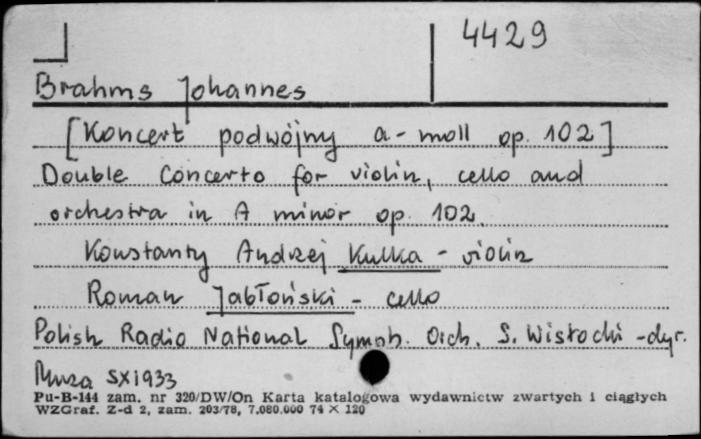 4429
Brahms Johannes
[Koncert podwójny a-moll op. 102]
Double Concerto for violin, cello and
orchestra in A minor op. 102.
Konstanty Andrzej Kulka - violin
Roman Jabłoński - cello
Polish Radio National Symph. Orch. S. Wisłocki - dyr.
Muza SX1933
Pu-B-144 zam. nr 320/DW/On Karta katalogowa wydawnictw zwartych i ciągłych
WZGraf. Z-d 2, zam. 203/78, 7.080.000 74 × 120